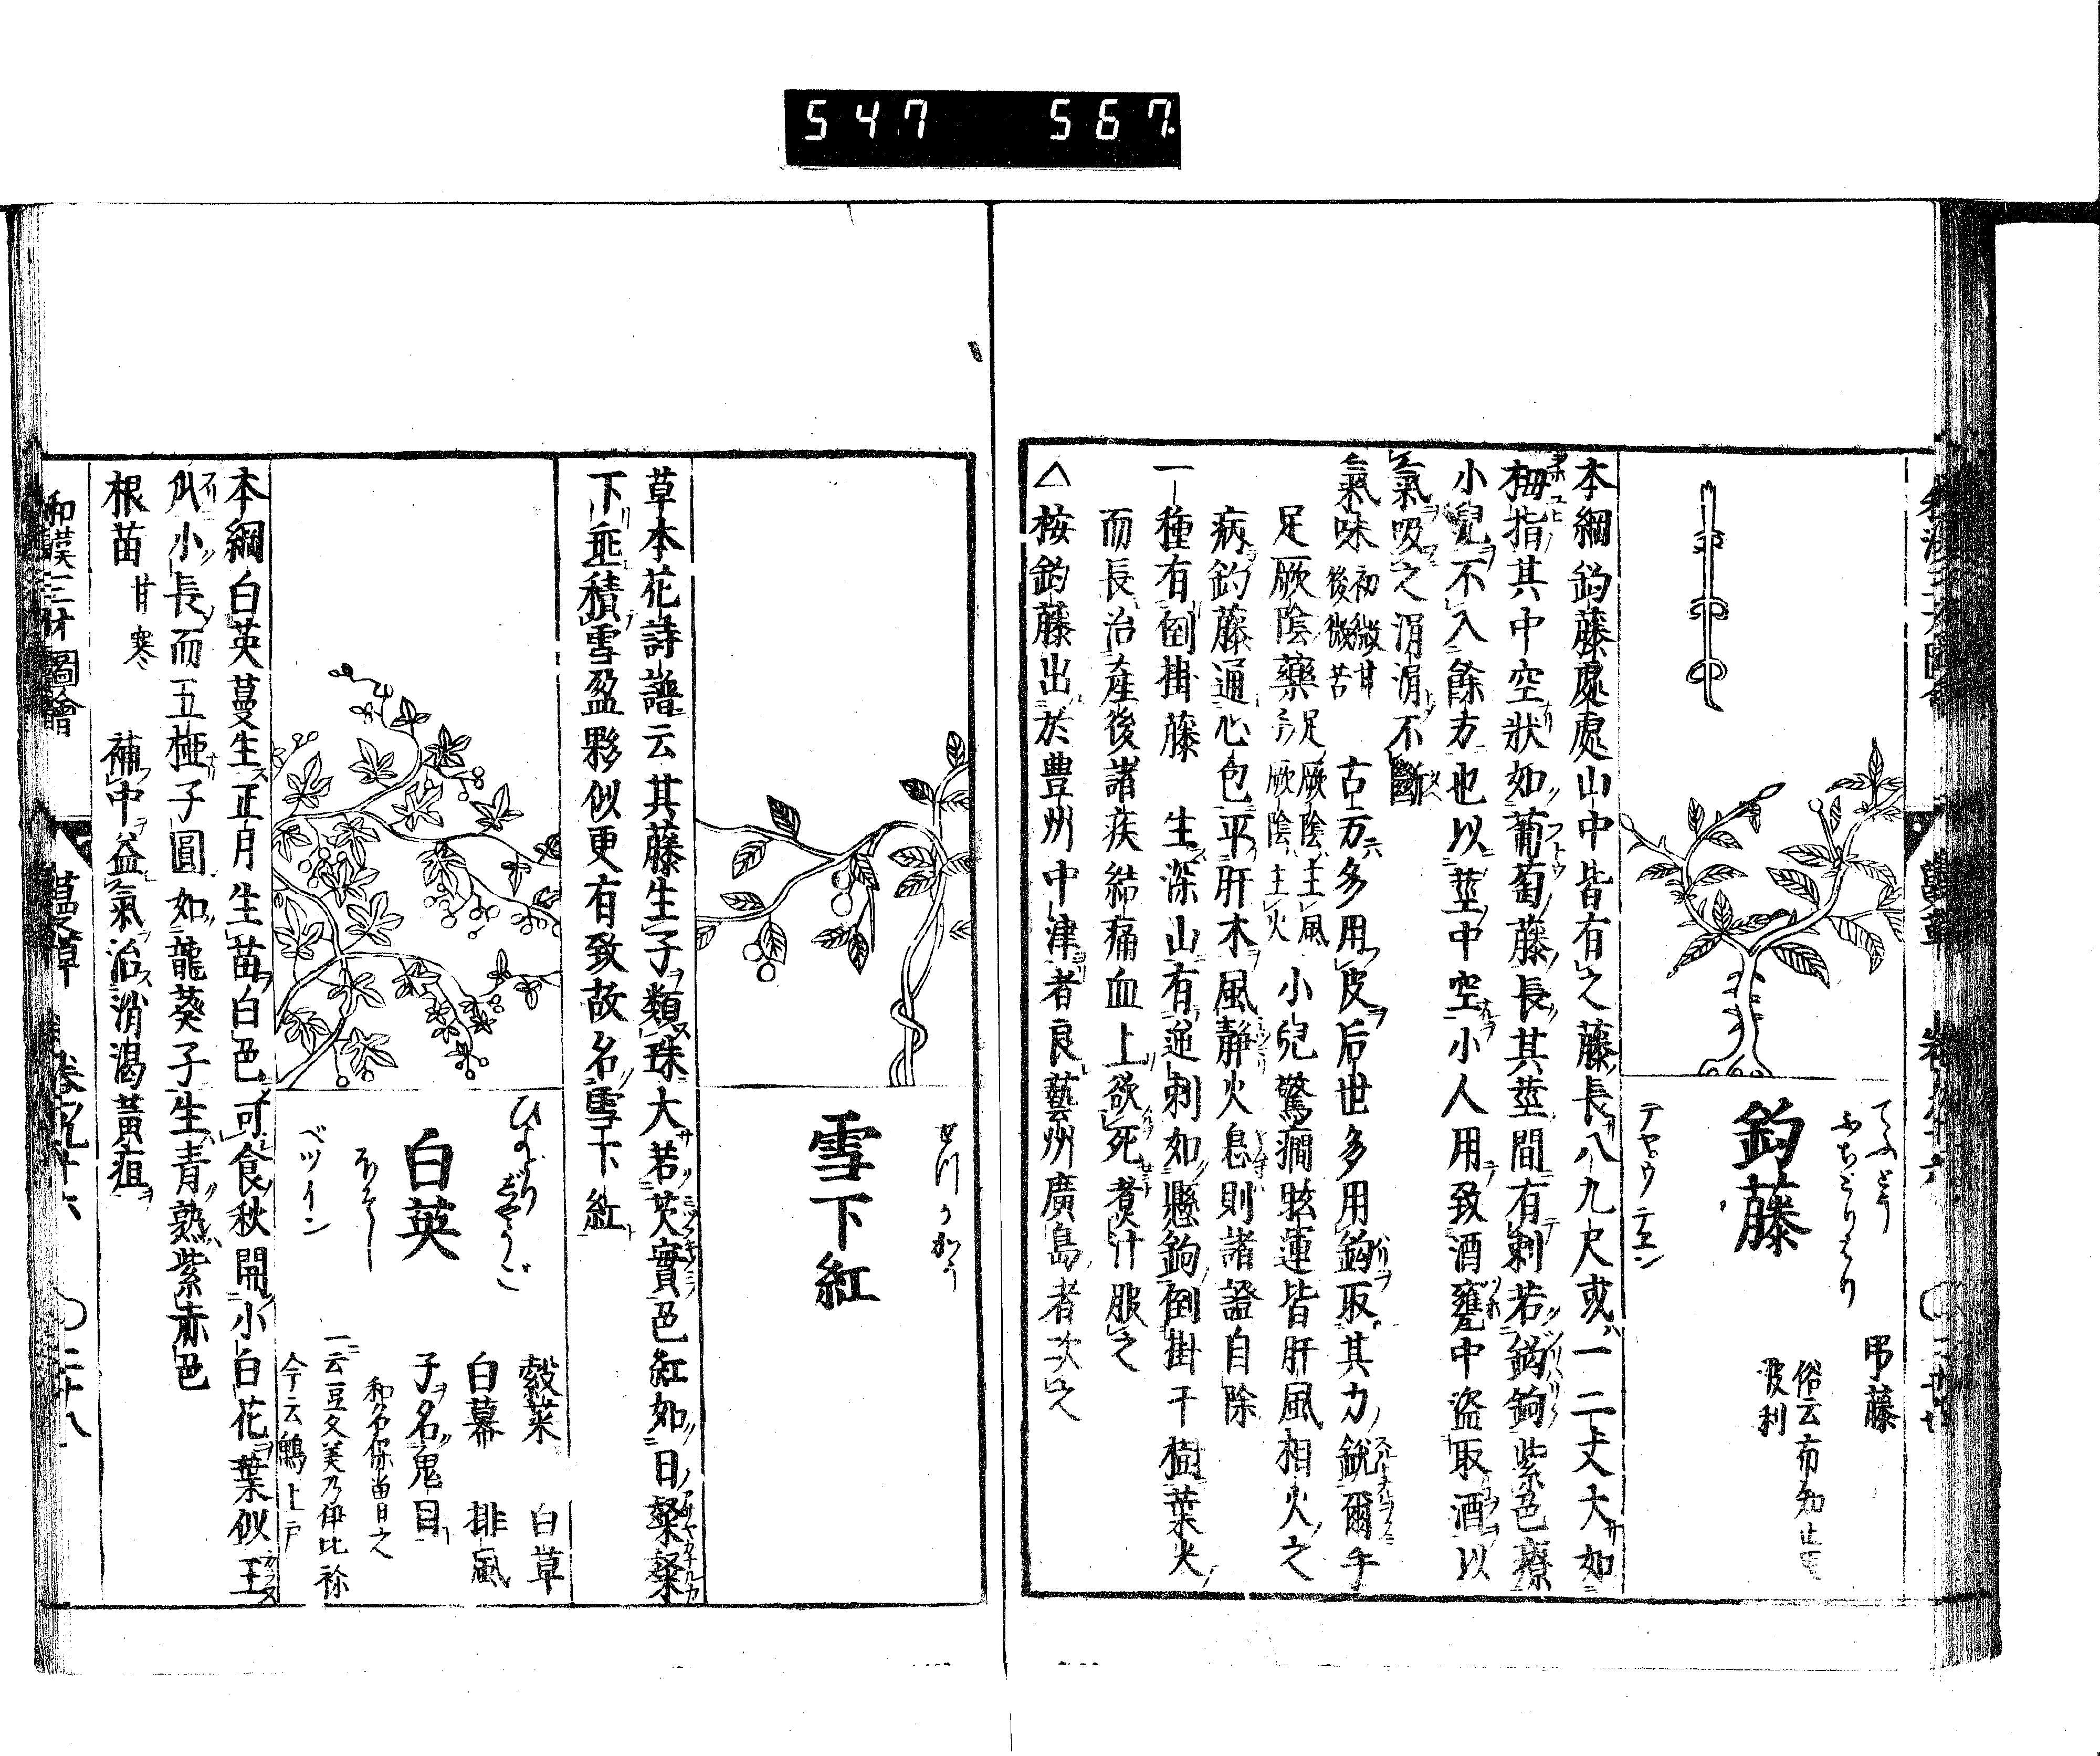 547 567
鈎藤
てふとう
ふちとりはり
テヤ゜ウ テエン
弔藤
俗云布知止里
波利
本綱鈎藤處處山中皆有之藤長八九尺或一二丈大如
拇指其中空狀如葡萄藤長其莖間有刺若鈎鈎紫色療
小兒不入餘方也以莖中空小人用致酒甕中盜取酒以
氣吸之涓涓不斷
氣味 初微甘 後微苦 古方多用皮后世多用鈎取其力銳爾手
足厥陰藥 足厥陰主風 手厥陰主火 小兒驚癇眩運皆肝風相火之
病鈎藤通心包平肝木風靜火息則諸證自除
一種有倒掛藤 生深山有逆刺如懸鈎倒掛于樹葉尖
而長治產後諸疾結痛血上欲死煑汁服之
△按鈎藤出於豊州中津者良藝州廣島者次之
雪下紅
せつかこう
草本花詩譜云其藤生子類珠大若芡實色紅如日粲粲
下垂積雪盈夥似更有致故名雪下紅
白英
ひよどりじやうご
ほそし
ベツイン
穀菜 白草
白幕 排風
子名鬼目
和名保曽之
一云豆久美乃伊比祢
今云鵯上戸
本綱白英蔓生正月生苗白色可食秋開小白花葉似王
瓜小長而五椏子圓如龍葵子生青熟紫赤色
根苗 甘寒 補中益氣治消渴黃疸
和漢三才圖會 蔓草 卷九十六 〇 二十八